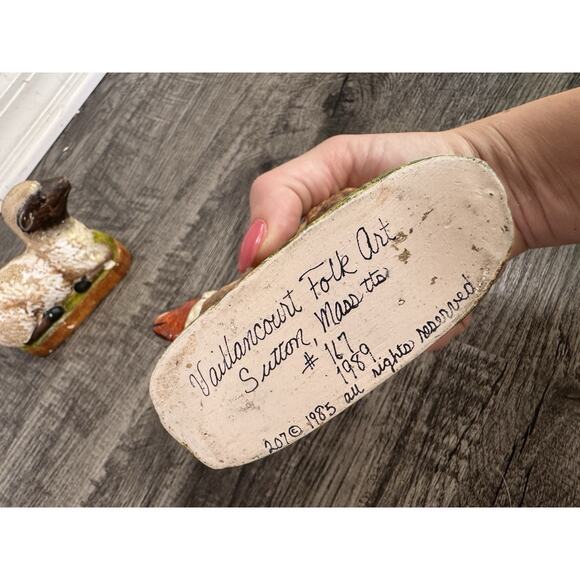 Vaillancourt Folk Art
Sutton, Masstts
# 167
1989
207 © 1985 all rights reserved